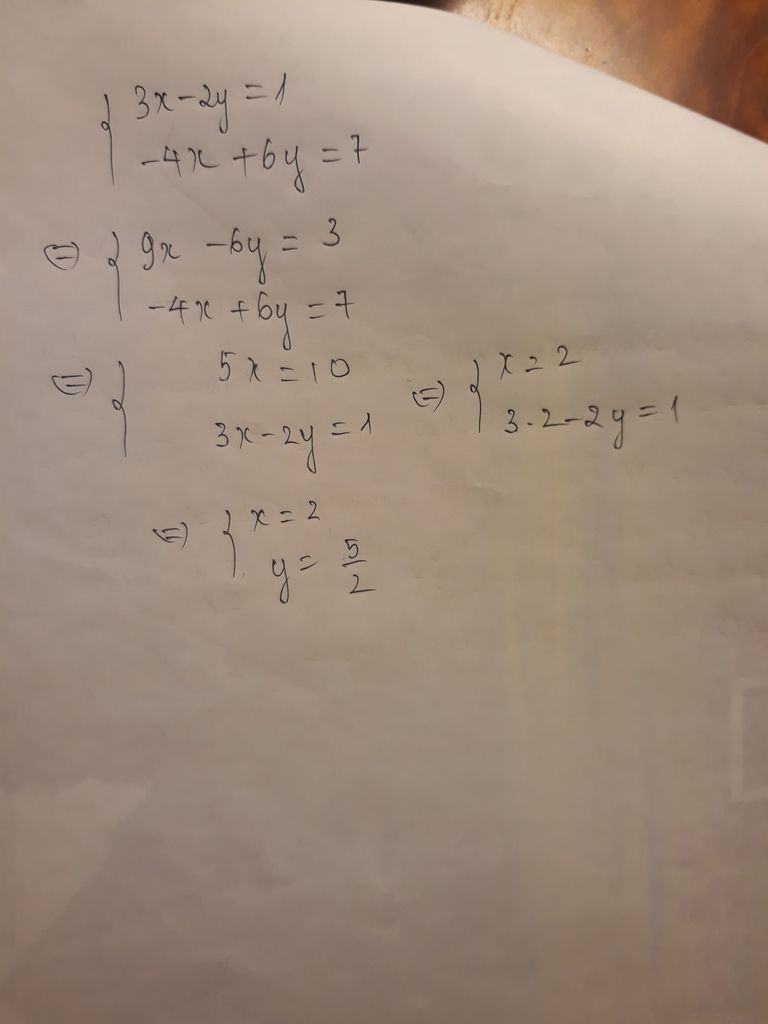 { 3x - 2y = 1
-4x + 6y = 7
⇔ { 9x - 6y = 3
-4x + 6y = 7
⇔ { 5x = 10
3x - 2y = 1
⇔ { x = 2
3.2 - 2y = 1
⇔ { x = 2
y = 5/2